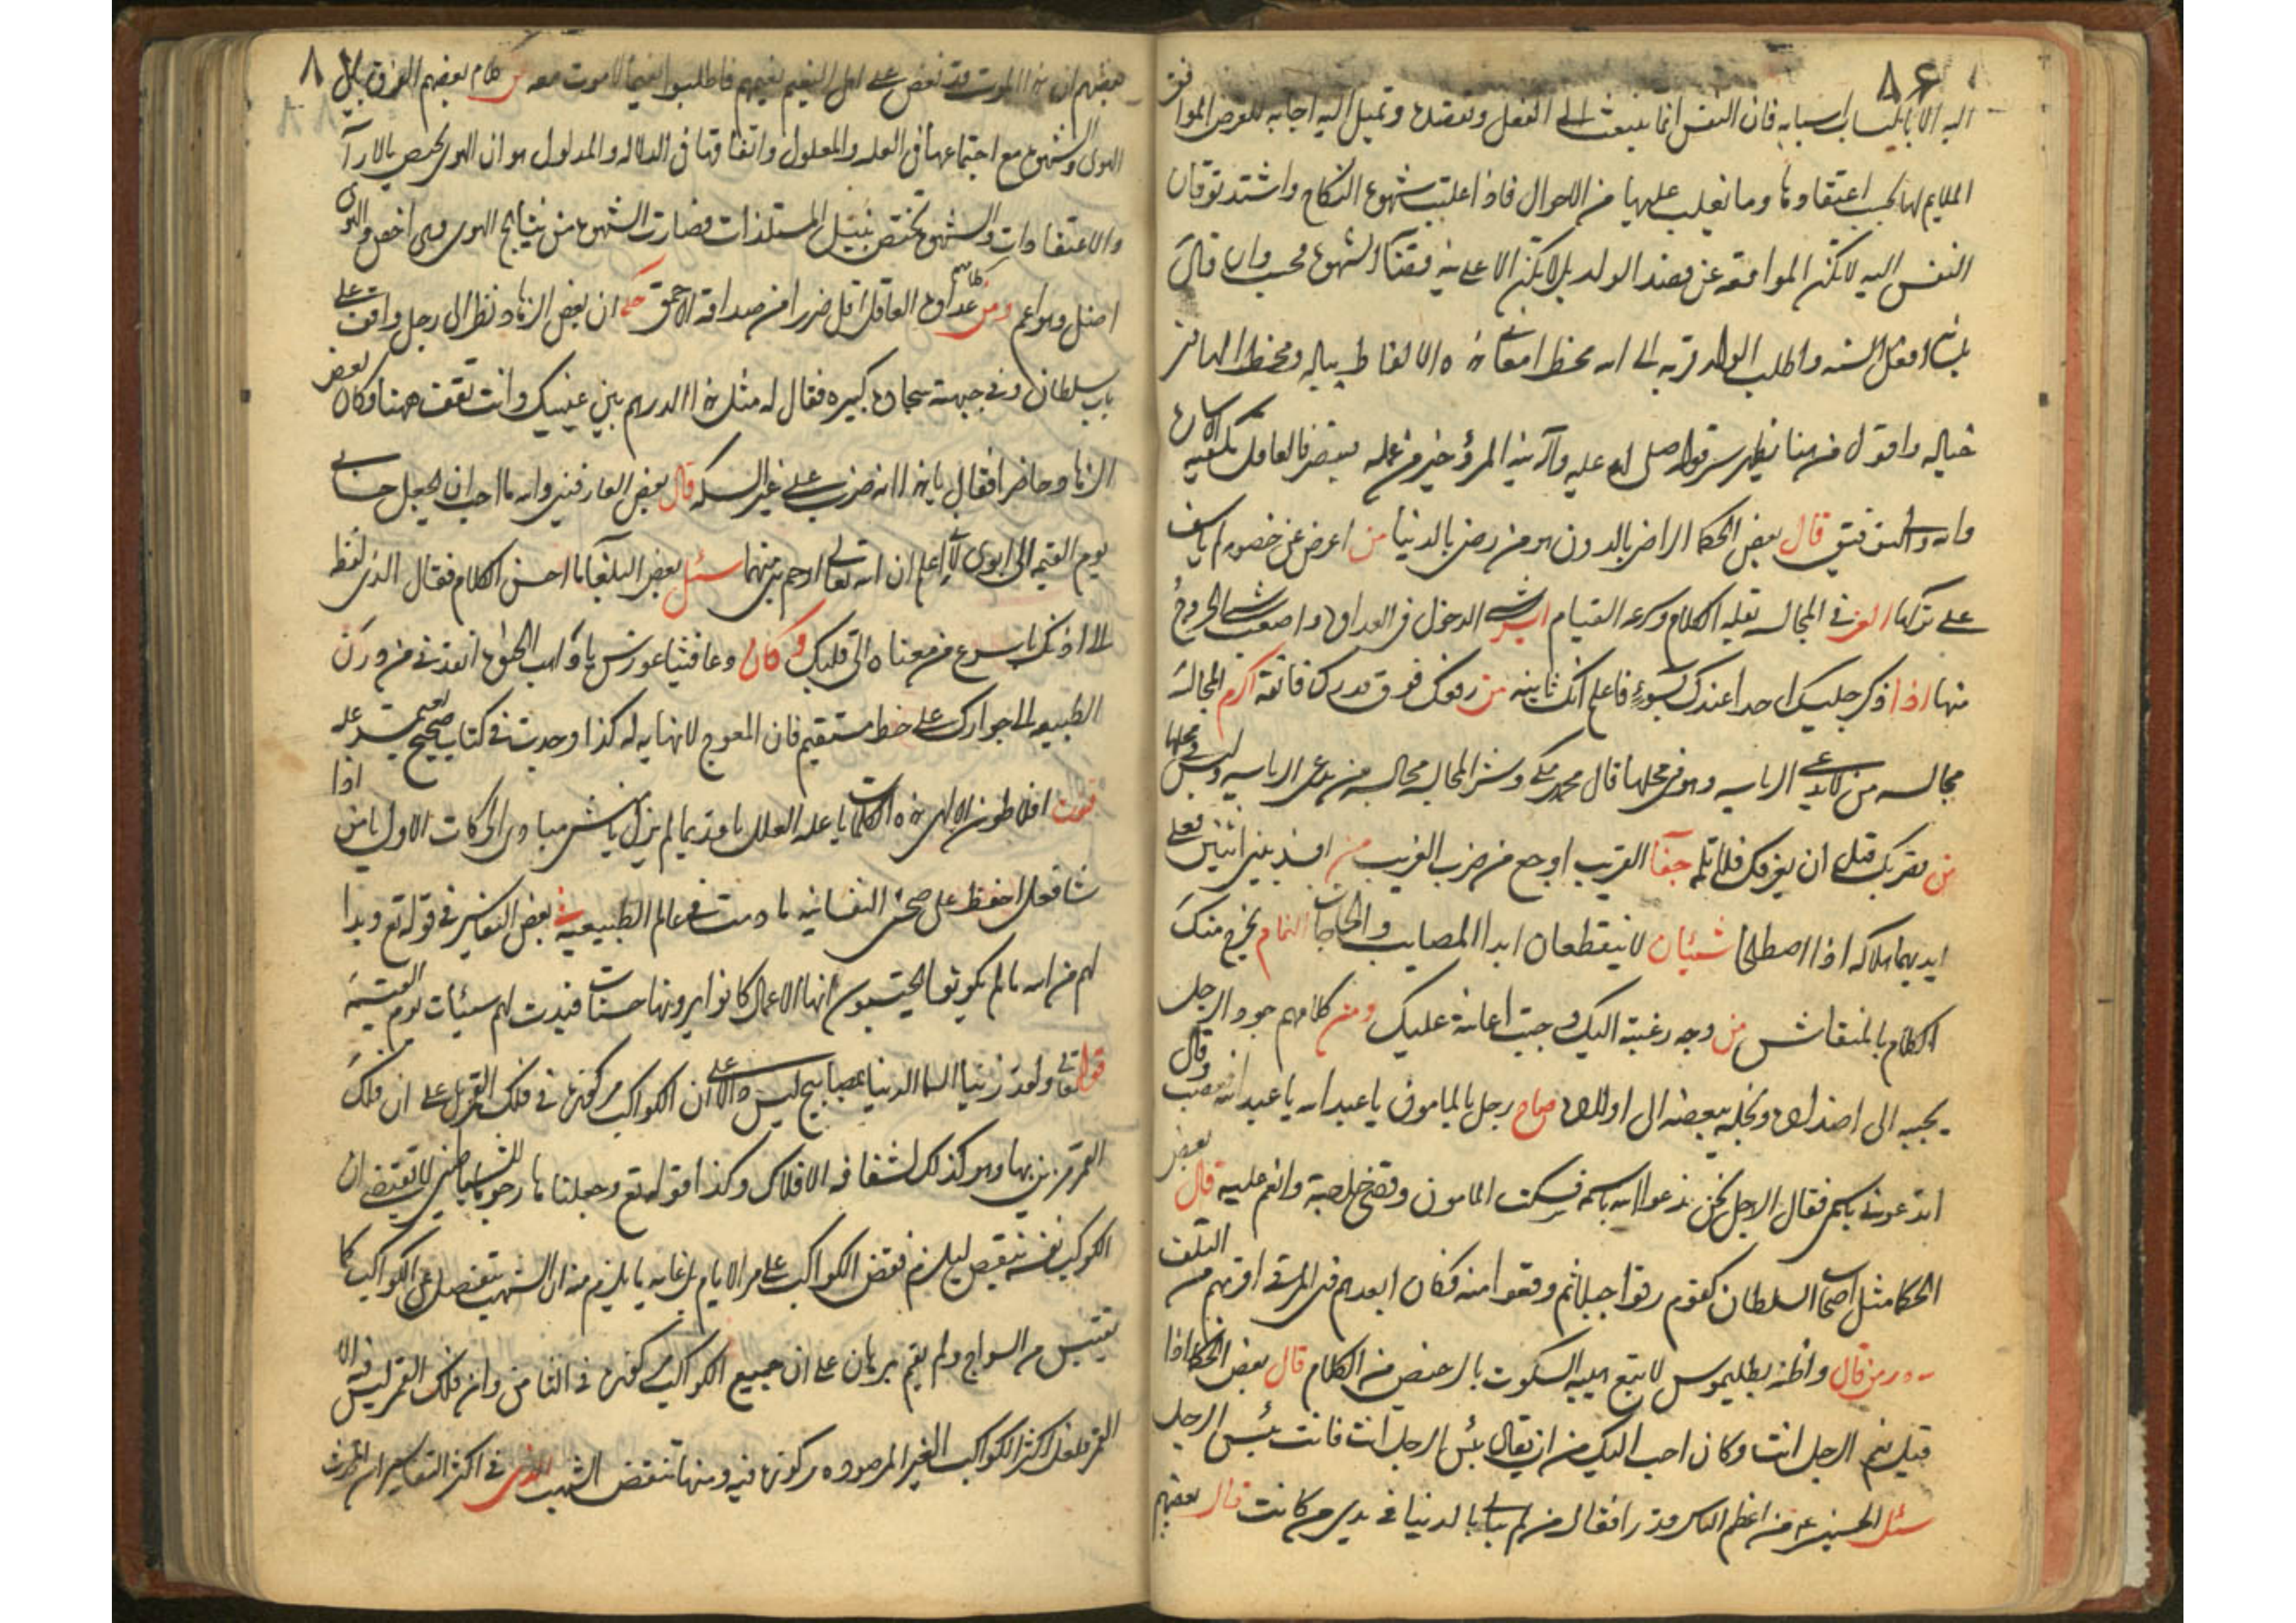 ٨٦
اليه الا باكتساب اسبابه فان النفس انما تنبعث الى الفعل وتقصده وتميل اليه اجابه للغرض الموافق
الملايم لها بحسب اعتقادها وما يغلب عليها من الاحوال فاذا غلبت شهوة النكاح واشتد توقان
النفس اليه لا يمكن المواقعه عن قصد الولد بل لا يمكن الا على نية قضاء الشهوة فحسب وان قال
بلسانه افعل السنه واطلب الولد قربة الى الله يخطر معانى هذه الالفاظ بباله ويخطرها فى
خياله واقول من هنا يظهر سر قوله صلى الله عليه وآله نية المرؤ خير من عمله فالعاقل تكفيه الاشارة
والله ولى التوفيق قال بعض الحكما الراضى بالدون هو من رضى بالدنيا من اعرض عن خصومه لم ياسف
على تركها العز فى المجالسه بقلة الكلام وسرعة القيام ايسر شى الدخول فى العداوة واصعب شى الخروج
منها اذا ذكر جليسك احدا عندك بسوء فاعلم انك ثانيه من رفعك فوق قدرك فاتقه اكرم المجالسه
مجالسه من لا يدعى الرياسه وهو فى محلها قال محمد مكى وشر المجالسه مجالسه من يدعى الرياسه وليس فى محلها
من تقرب قبل ان يعرفك فلا تله جفاء القريب اوجع من ضرب الغريب من افسد بين اثنين فعلى
ايديهما هلاكه اذا اصطلحا شيئان لا ينقطعان ابدا المصايب والحاجات النمام يخرج منك
الكلام بالمنقاش من وجه رغبته اليك وجبت اعانته عليك ومن كلامهم جود الرجل
يحببه الى اضداده وبخله يبغضه الى اولاده صاح رجل بالمامون يا عبد الله يا عبد الله فغضب وقال
اتدعونى باسمى فقال الرجل نحن ندعوا الله باسمه فسكت المامون وقضى حاجته وانعم عليه قال بعض
الحكما مثل اصحاب السلطان كقوم رقوا جبلا ثم وقعوا منه فكان ابعدهم فى المرقى اقربهم من التلف
من قال واظنه بطليموس لا تبع هيبه السكوت بالرخيص من الكلام قال بعض الحكما اذا
قيل نعم الرجل انت وكان احب اليك من ان يقال بئس الرجل انت فانت بئس الرجل
سئل الحسين ع من اعظم الناس قدرا فقال من لم يبال بالدنيا فى يدى من كانت قال بعضهم
بعضهم ان هذا الموت قد نغص على اهل النعيم نعيمهم فاطلبوا نعيما لا موت معه من كلام بعضهم الفرق بين
الهوى والشهوة مع اجتماعهما فى العله والمعلول واتفاقهما فى الدلاله والمدلول هو ان الهوى يختص بالاراء
والاعتقادات والشهوة تختص بنيل المستلذات فصارت الشهوة من نتايج الهوى وهى اخص والهوى
اصل وهو اعم ومن كلامهم عداوة العاقل اقل ضررا من صداقة الاحمق حكى ان بعض الزهاد نظر الى رجل واقف على
باب سلطان وفى جبهته سجادة كبيره فقال له مثل هذا الدرهم بين عينيك وانت تقف ههنا وكان بعض
الزهاد حاضرا فقال يا هذا انه ضرب على غير السكه قال بعض العارفين والله ما احب ان يجعل حسابى
يوم القيمه الى ابوى لانى اعلم ان الله تعالى ارحم بى منهما سئل بعض البلغاء ما احسن الكلام فقال الذى لفظه
الى اذنك باسرع من معناه الى قلبك وكان دعا فيثاغورس يا واهب الحيوة انقذنى من درن
الطبيعه الى جوارك على خط مستقيم فان المعوج لا نهايه له كذا وجدت فى كتاب صحيح يعتمد عليه
قنوت افلاطون الالهى هذه الكلمات يا علة العلل يا قديما لم يزل يا منشى مبادى الحركات الاول يا من اذا
شا فعل احفظ على صحتى النفسانيه ما دمت فى عالم الطبيعه بعض التفاسير فى قوله تع وبدا
لهم من الله ما لم يكونوا يحتسبون انها الاعمال كانوا يرونها حسنات فبدت لهم سيئات يوم القيمه
قوله تعالى ولقد زينا السما الدنيا بمصابيح ليس على ان الكواكب مركوزة فى فلك القمر بل على ان فلك
القمر مزين بها وهو كذلك لشفافه الافلاك وكذا قوله تع وجعلناها رجوما للشياطين لا يقتضى ان
الكوكب نفسه ينقض ليلزم نقص الكواكب على مر الايام بل غايه ما يلزم منه ان الشهب تنفصل عن الكواكب كما
تقتبس من السراج ولم يقم برهان على ان جميع الكواكب مركوزة فى الثامن وان فلك القمر ليس فيه الا
القمر فلعل اكثر الكواكب الغير المرصوده مركوزة فيه ومنها تنقض الشهب الذى فى اكثر التفاسير ان